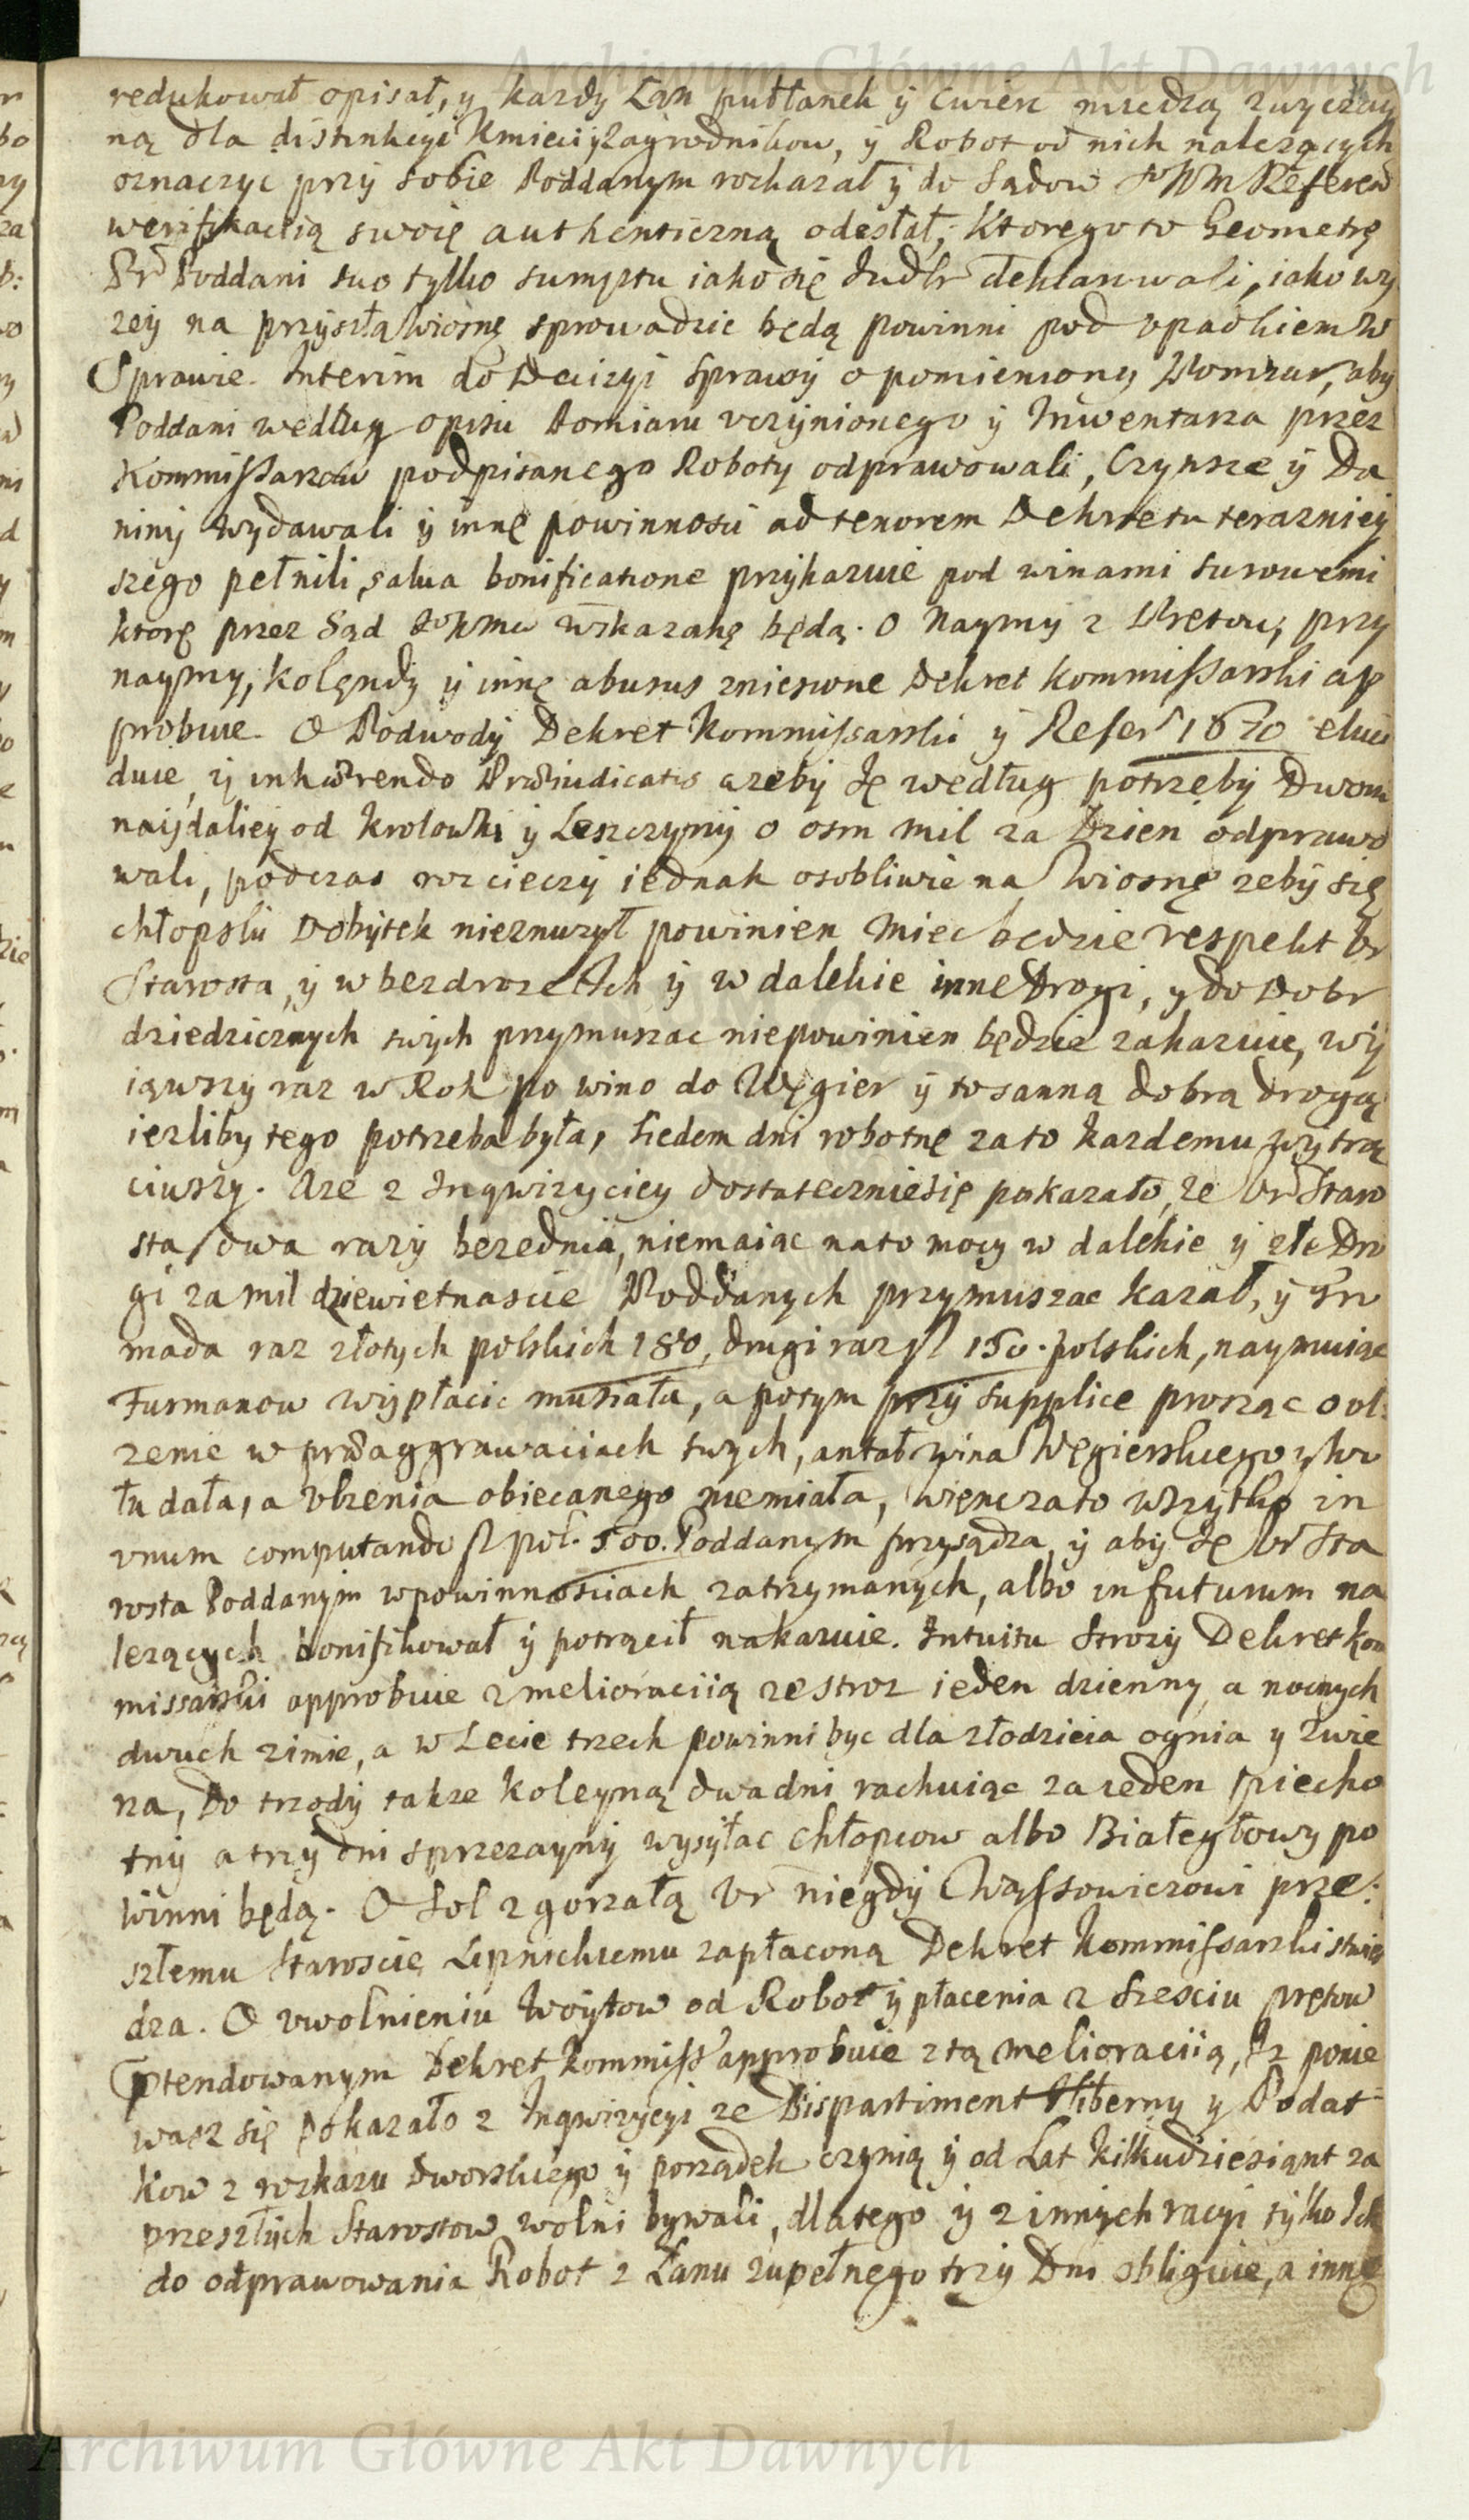 Archiwum Główne Akt Dawnych
redukował opisał, y kazdy Łan pułłanek y cwierc miedzą zwyczay
ną dla distinkcyi Kmieci y Zagrodnikow, y Robot od nich nalezących
oznaczyc przy sobie Poddanym rozkazał y do Sądow Referen
werifikacią swoię authenticzną odesłał, Ktorego to Geometrę
Poddani suo tylko sumptu iako się deklarowali, iako wy
zey na przyszłą wiosnę sprowadzic będą powinni pod upadkiem w
Sprawie. Interim do Decizyi sprawy o pomieniony Pomiar, aby
Poddani według opisu Pomiaru uczynionego y Inwentarza przez
Kommissarzow podpisanego Roboty odprawowali, Czynsze y Da
niny wydawali y innę powinnosci ad tenorem Dekretu teraznieÿ
szego pełnili, salva bonificatione przykazuie pod winami surowemi
ktorę przez Sąd wskazanę będą. O Naymy z Prętow, przy
naymy, kolęndy y innę abusus zniesione Dekret Kommissarski ap
probuie. O Podwody Dekret Kommissarski y Refer 1670 eluci
duie, y inhærendo Præiudicatis azeby Ię według potrzeby Dworu
naydaliey od Krolowki y Leszczyny o osm mil za Dzien odprawo
wali, podczas rozcieczy iednak osobliwie na Wiosnę zeby się
chłopski Dobytek nieznuzył powinien miec będzie respekt Ur
Starosta, y w bezdrozach y w dalekie inne Drogi, y do Dobr
dziedzicznych swych przymuszac niepowinien będzie zakazuie, wy
iąwszy raz w Rok po wino do Węgier y to sanną dobrą drogą
iezliby tego potrzeba była, siedem dni robotnę za to kazdemu wytrą
ciwszy. Aze z Inqwizyciey dostatecznie się pokazało, ze Ur Staro
sta dwa razy bezednia, niemaiąc na to mocy w dalekie y złe Dro
gi za mil dziewietnascie Poddanych przymuszac kazał, y Gro
mada raz złotych polskich 180, drugi raz fl 150. polskich, naymuiąc
Furmanow wypłacic musiała, a potym przy supplice prosząc o ol:
zenie w præaggrawaciach swych, antał wina Węgierskiego
dała, a ulzenia obiecanego niemiała, więnc za to wszytko in
unum computando fl pol. 500. Poddanym przysądza, y aby Ię Ur Sta
rosta Poddanym w powinnosciach zatrzymanych, albo in futurum na
lezących bonifikował y potrącił nakazuie. Intuitu Strozy Dekret Kom
missarski approbuie z melioraciią ze stroz ieden dzienny a nocnych
dwuch zimie, a w Lecie trzech powinni byc dla złodzieia ognia y zwie
rza, Do trzody takze koleyną dwa dni rachuiąc za ieden piecho
tny a trzy dni sprzezayny wysyłac chłopcow albo Białegłowy po
winni będą. O Sol zgorzałą Ur niegdy Wąssowiczowi prze:
szłemu Staroscie Lipnickiemu zapłaconą Dekret Kommissarski stwier
dza. O uwolnieniu Woytow od Robot y płacenia z szesciu prętow
ptendowanym Dekret Kommiss approbuie z tą melioraciią, Iz ponie
wasz się pokazało z Inqwizycyi ze Dispartiment Hiberny y Podat
kow z rozkazu Dworskiego y porządek czynią y od Lat kilkudziesiąnt za
przeszłych Starostow wolni bywali, dlatego y z innych racyi tylko Ich
do odprawowania Robot z Łanu zupełnego trzy Dni obliguie, a innę
Archiwum Główne Akt Dawnych